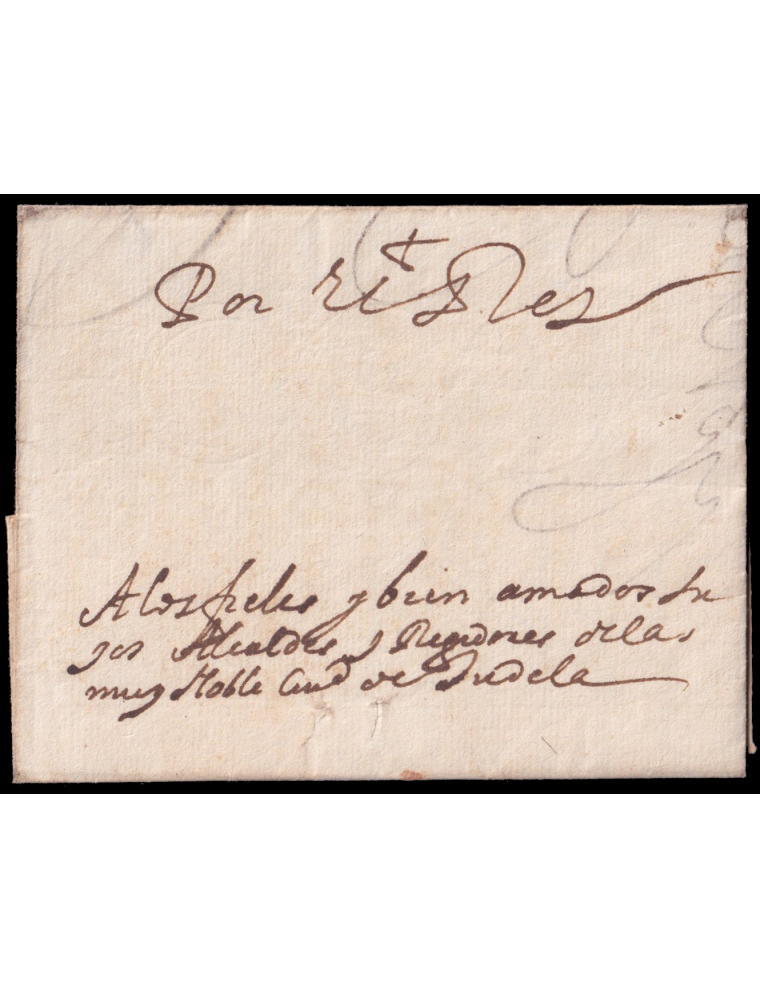 †
Por el Rey
A los fieles y bien amados su
yos Alcaldes y Regidores de la
muy Noble Ciud de Tudela